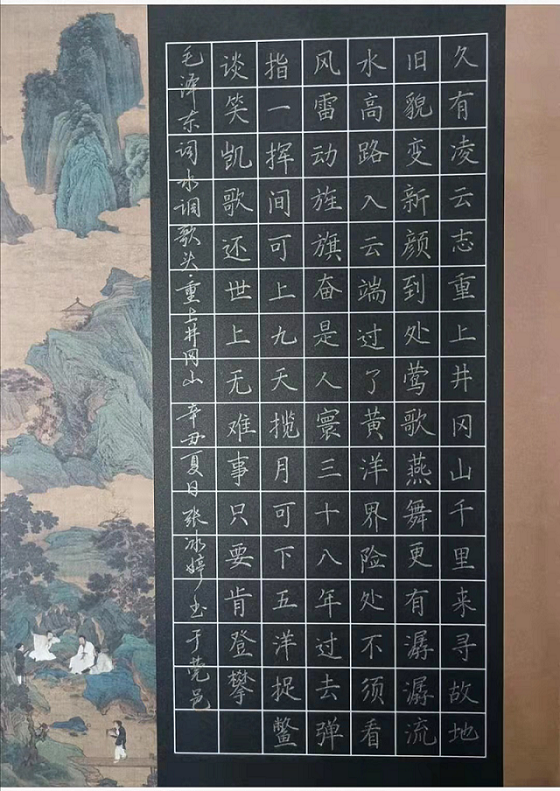 久有凌云志重上井冈山千里来寻故地
旧貌变新颜到处莺歌燕舞更有潺潺流
水高路入云端过了黄洋界险处不须看
风雷动旌旗奋是人寰三十八年过去弹
指一挥间可上九天揽月可下五洋捉鳖
谈笑凯歌还世上无难事只要肯登攀
毛泽东词水调歌头·重上井冈山 辛丑夏日张冰婷书于莞邑